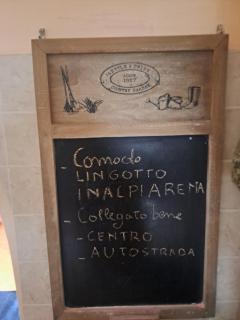 - Comodo
LINGOTTO
INALPIARENA
- Collegato bene
- CENTRO
- AUTOSTRADA